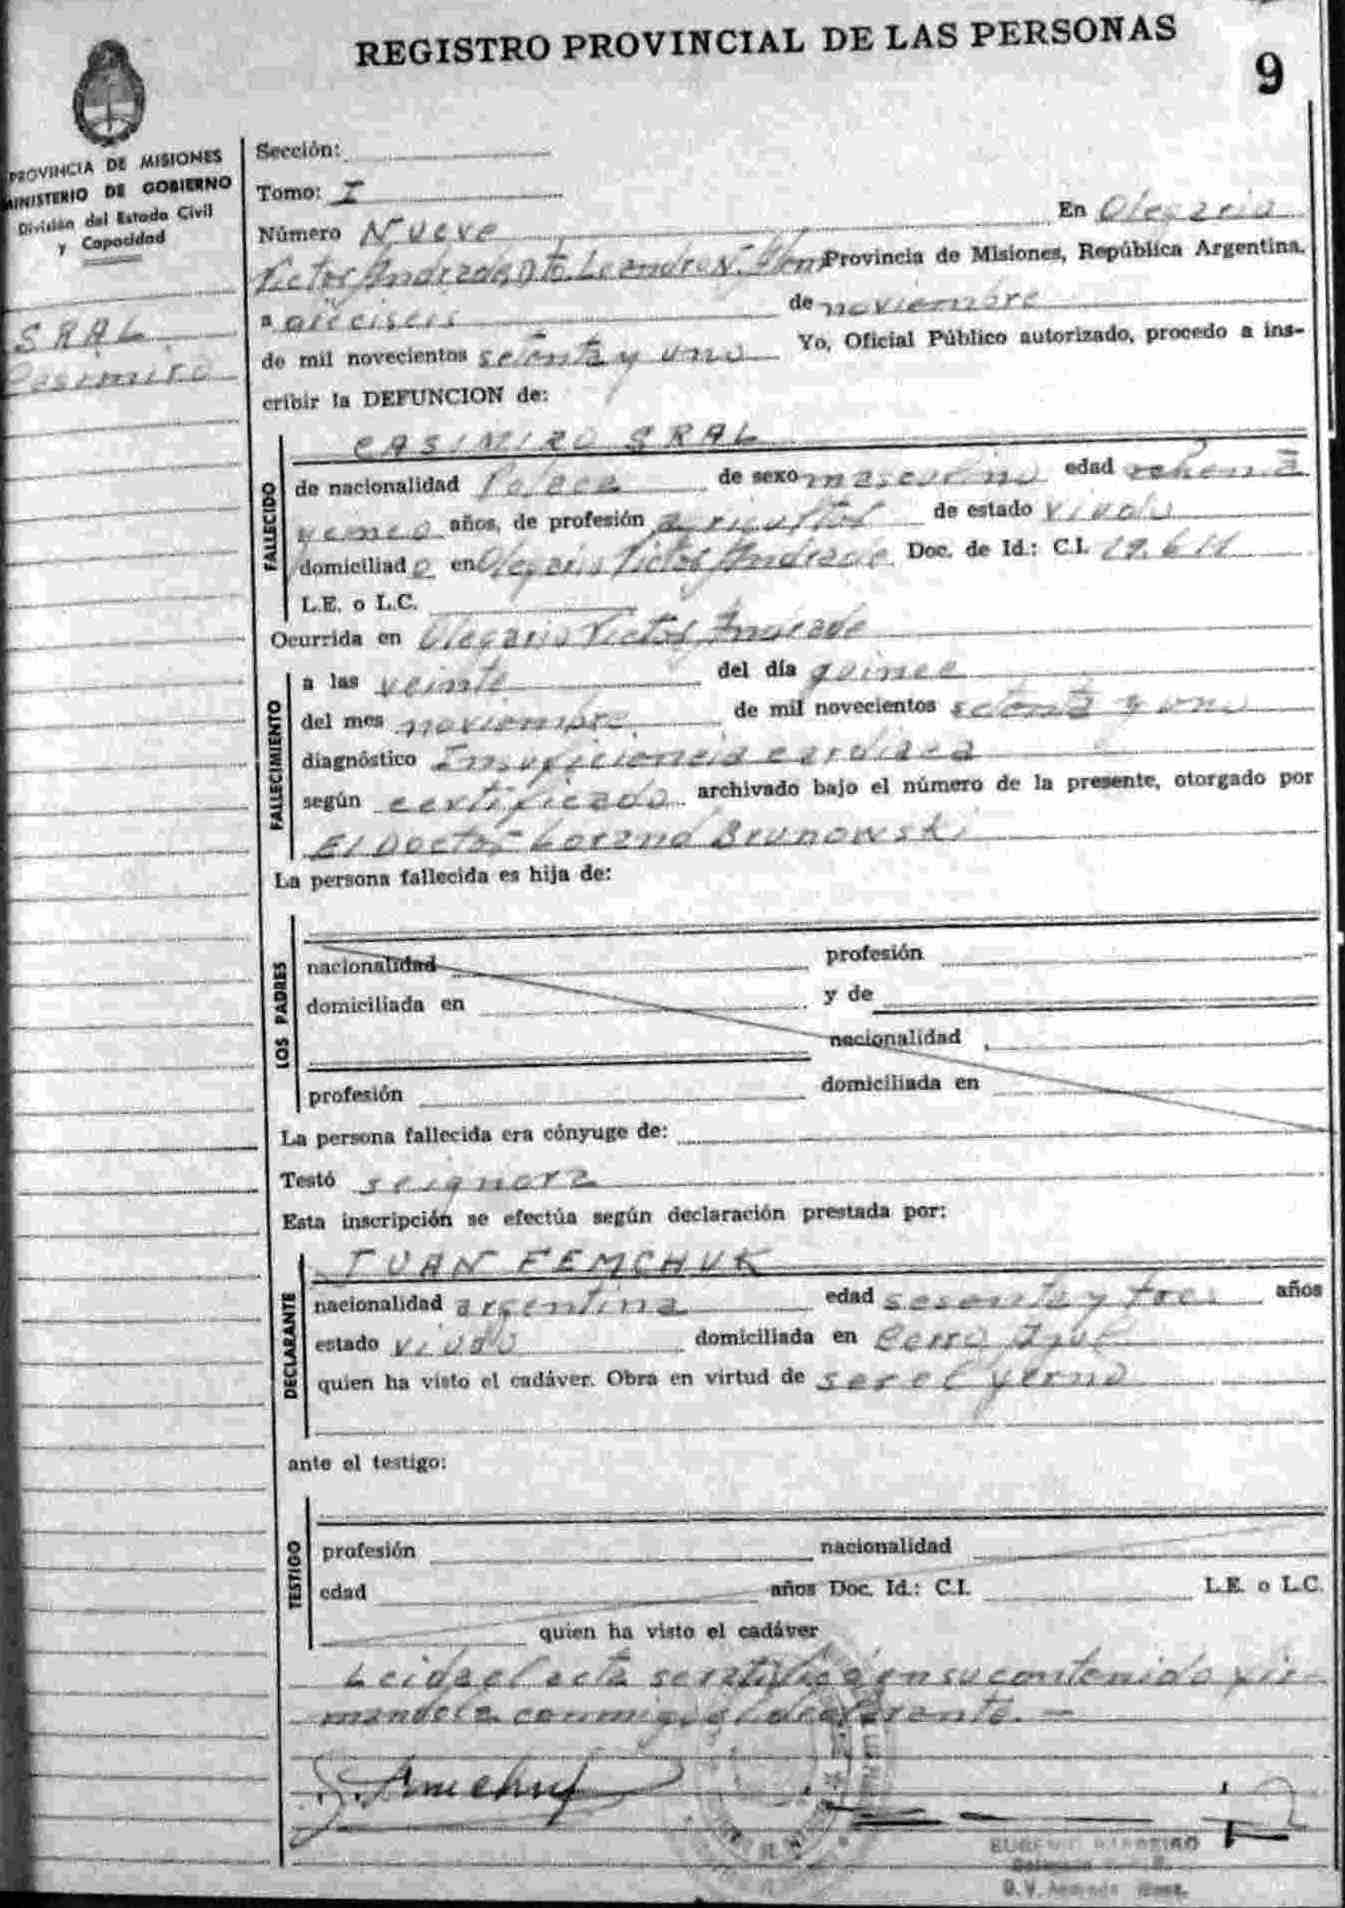 REGISTRO PROVINCIAL DE LAS PERSONAS
9
PROVINCIA DE MISIONES
MINISTERIO DE GOBIERNO
División del Estado Civil
y Capacidad
SRAL
Casimiro
Sección:
Tomo: I
Número Nueve En Olegario
Victor Andrade, Dto. Leandro N. Alem Provincia de Misiones, República Argentina,
a dieciseis de noviembre
de mil novecientos setenta y uno Yo, Oficial Público autorizado, procedo a ins-
cribir la DEFUNCION de:
CASIMIRO SRAL
FALLECIDO
de nacionalidad Polaca de sexo masculino edad ochenta
y cinco años, de profesión agricultor de estado viudo
domiciliado en Olegario Victor Andrade Doc. de Id.: C.I. 19.611
L.E. o L.C.
Ocurrida en Olegario Victor Andrade
FALLECIMIENTO
a las veinte del día quince
del mes noviembre de mil novecientos setenta y uno
diagnóstico Insuficiencia cardiaca
según certificado archivado bajo el número de la presente, otorgado por
El Doctor Brunowski
La persona fallecida es hija de:
LOS PADRES
nacionalidad profesión
domiciliada en y de
nacionalidad
profesión domiciliada en
La persona fallecida era cónyuge de:
Testó se ignora
Esta inscripción se efectúa según declaración prestada por:
JUAN FEMCHUK
DECLARANTE
nacionalidad argentina edad sesenta y tres años
estado viudo domiciliada en Cerro Azul
quien ha visto el cadáver. Obra en virtud de ser el yerno
ante el testigo:
TESTIGO
profesión nacionalidad
edad años Doc. Id.: C.I. L.E. o L.C.
quien ha visto el cadáver
Leida el acta se ratificó en su contenido fir-
mandola conmigo el declarante. —
O. V. Andrade